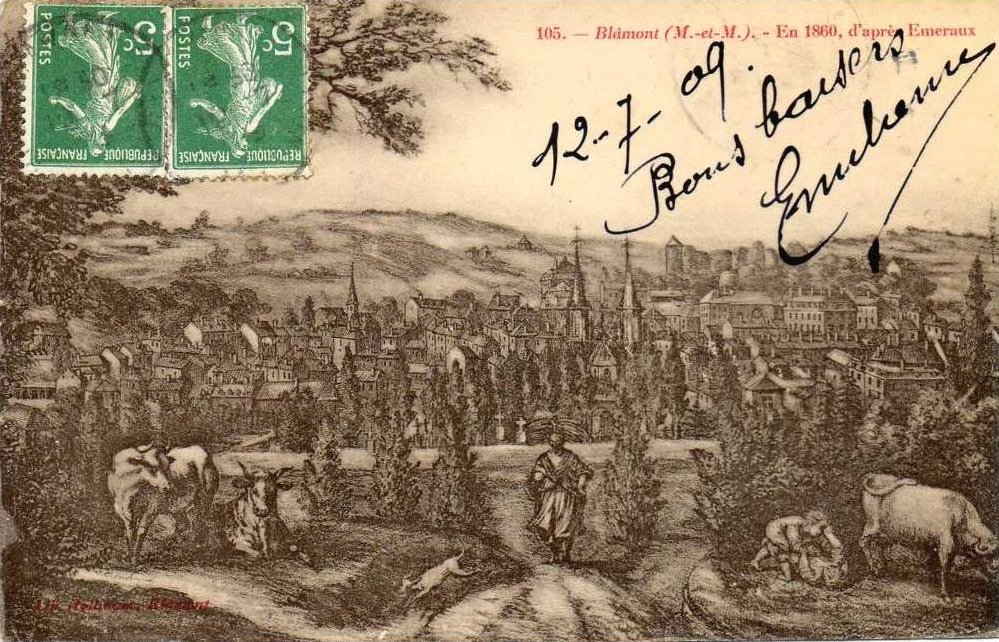 105. — Blâmont (M.-et-M.). - En 1860, d'après Emeraux
12-7-09.
Bons baisers
5c
POSTES
REPUBLIQUE FRANÇAISE
5c
POSTES
REPUBLIQUE FRANÇAISE
Blamont